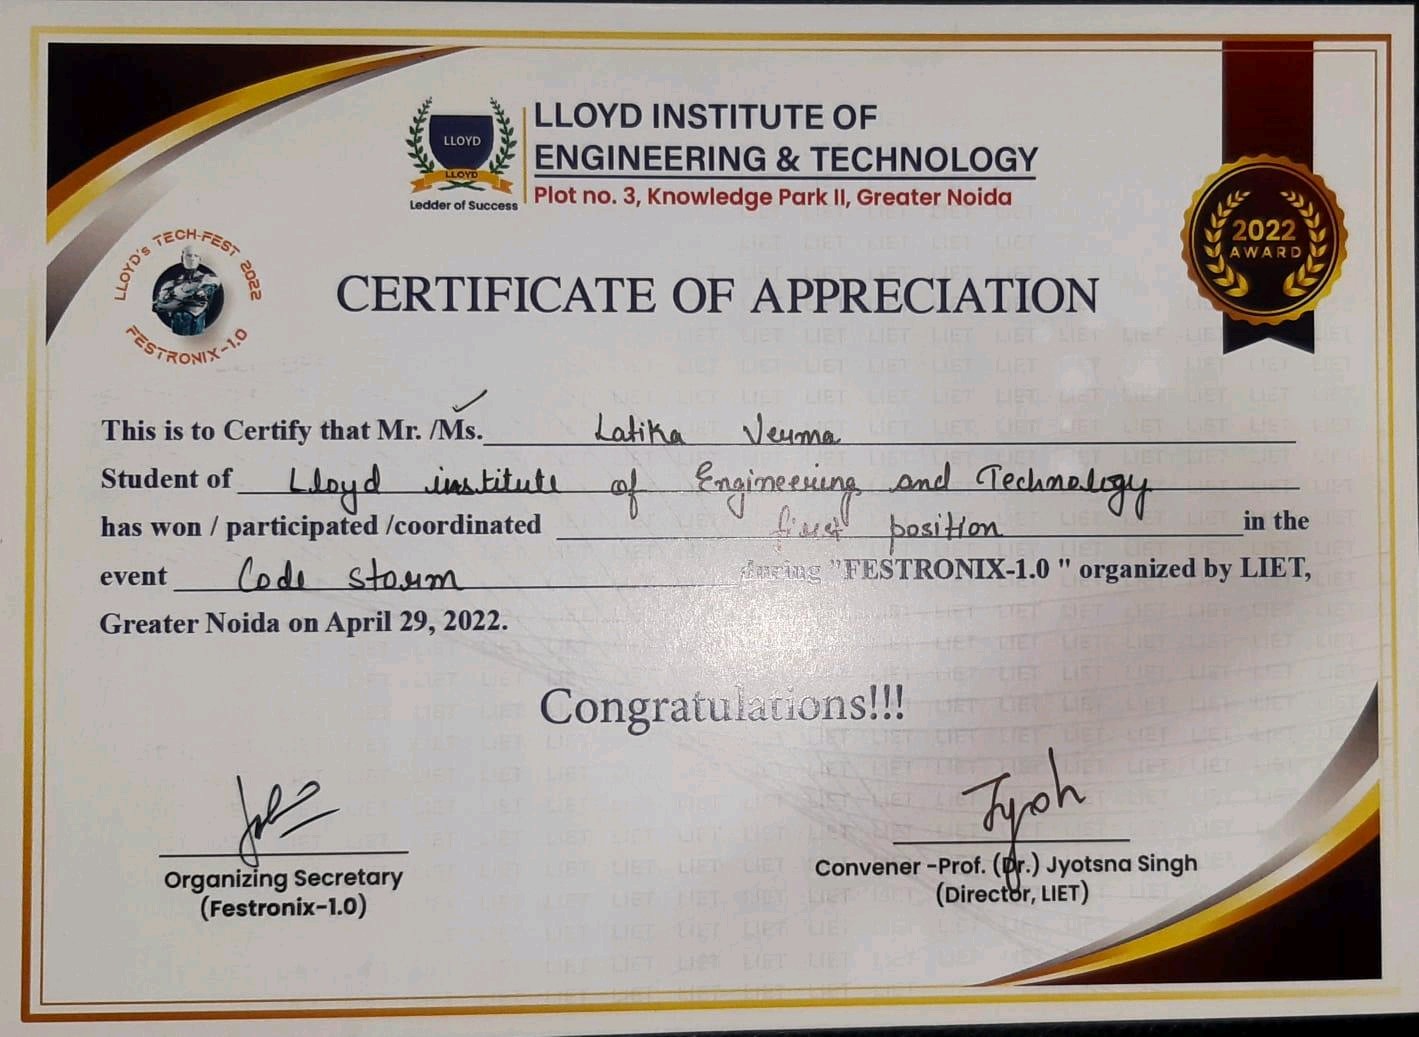 LLOYD INSTITUTE OF
ENGINEERING & TECHNOLOGY
Plot no. 3, Knowledge Park II, Greater Noida
LLOYD
LLOYD
Ledder of Success
2022
AWARD
LLOYD'S TECH-FEST 2022
FESTRONIX-1.0
CERTIFICATE OF APPRECIATION
This is to Certify that Mr. /Ms. Latika Verma
Student of Lloyd institute of Engineering and Technology
has won / participated /coordinated first position in the
event Code storm during "FESTRONIX-1.0 " organized by LIET,
Greater Noida on April 29, 2022.
Congratulations!!!
Jyosh
Organizing Secretary
(Festronix-1.0)
Convener -Prof. (Dr.) Jyotsna Singh
(Director, LIET)